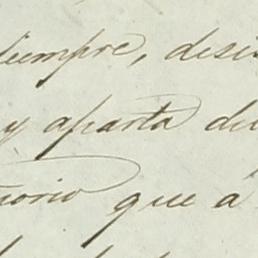 siempre, desis
y aparta del
torio que a